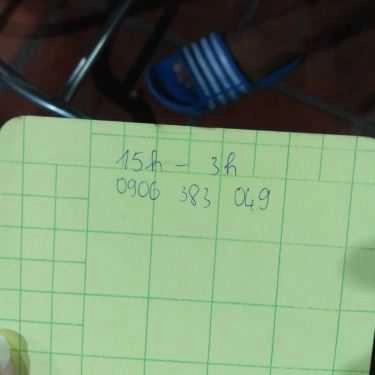 15h - 3h
0906 383 049